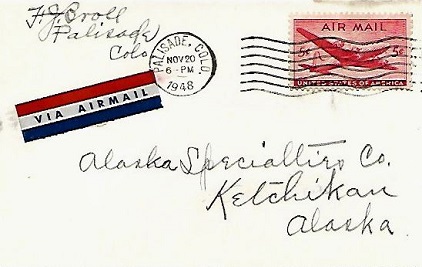 F.J. Croll
Palisade
Colo
PALISADE, COLO.
NOV 20
6 - PM
1948
AIR MAIL
5¢ 5¢
UNITED STATES OF AMERICA
VIA AIRMAIL
Alaska Specialties Co.
Ketchikan
Alaska